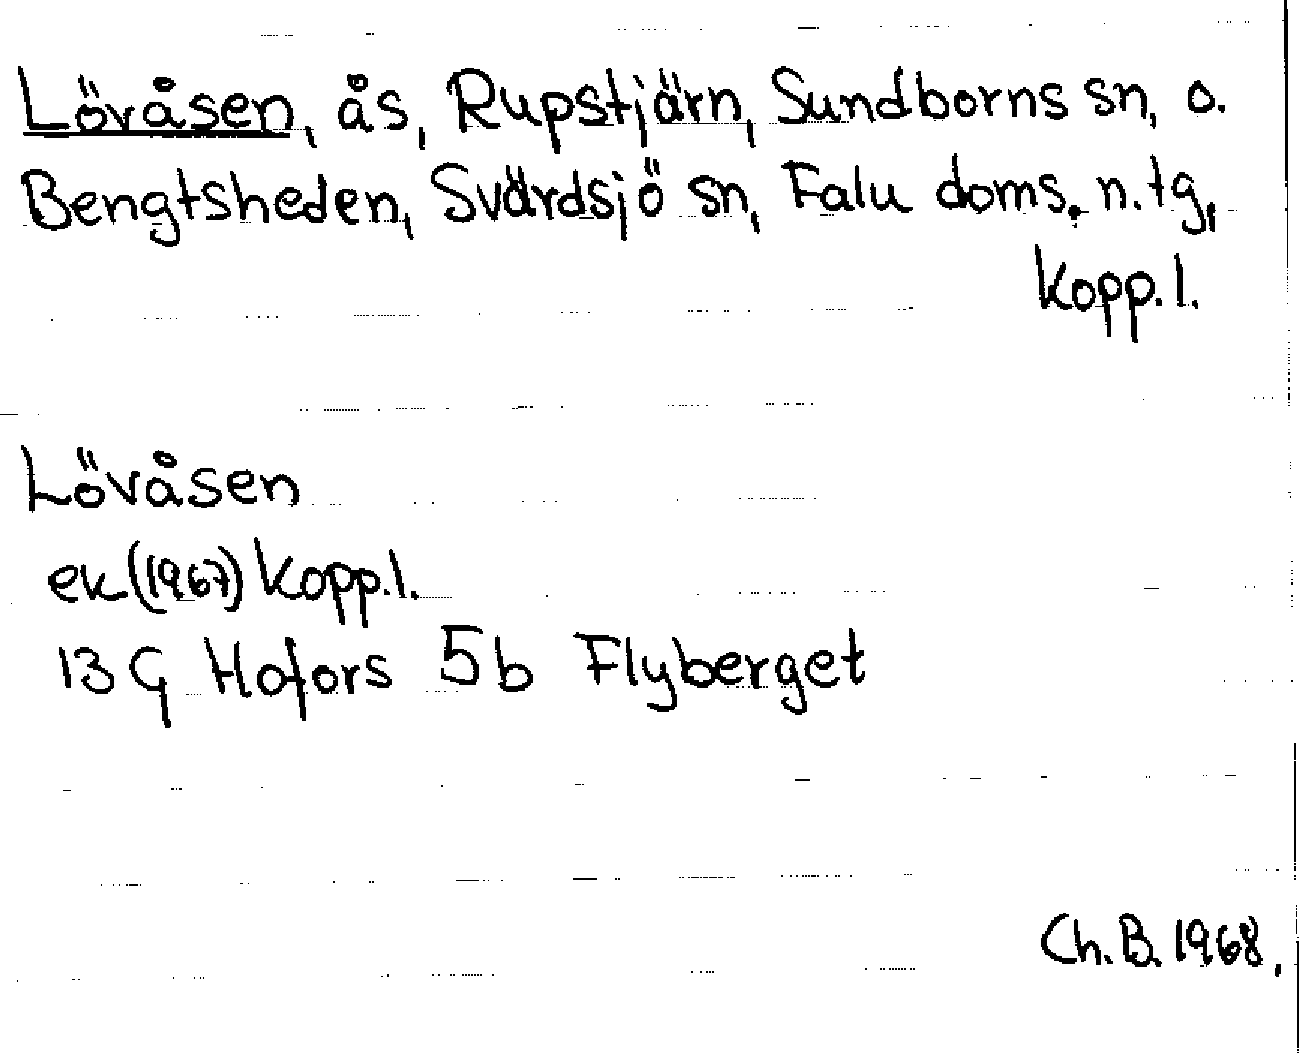 Lövåsen, ås, Rupstjärn, Sundborns sn, o.
Bengtsheden, Svärdsjö sn, Falu doms. n. tg,
Kopp. l.
Lövåsen
ek (1967) Kopp. l.
13 G Hofors 5b Flyberget
Ch. B. 1968.